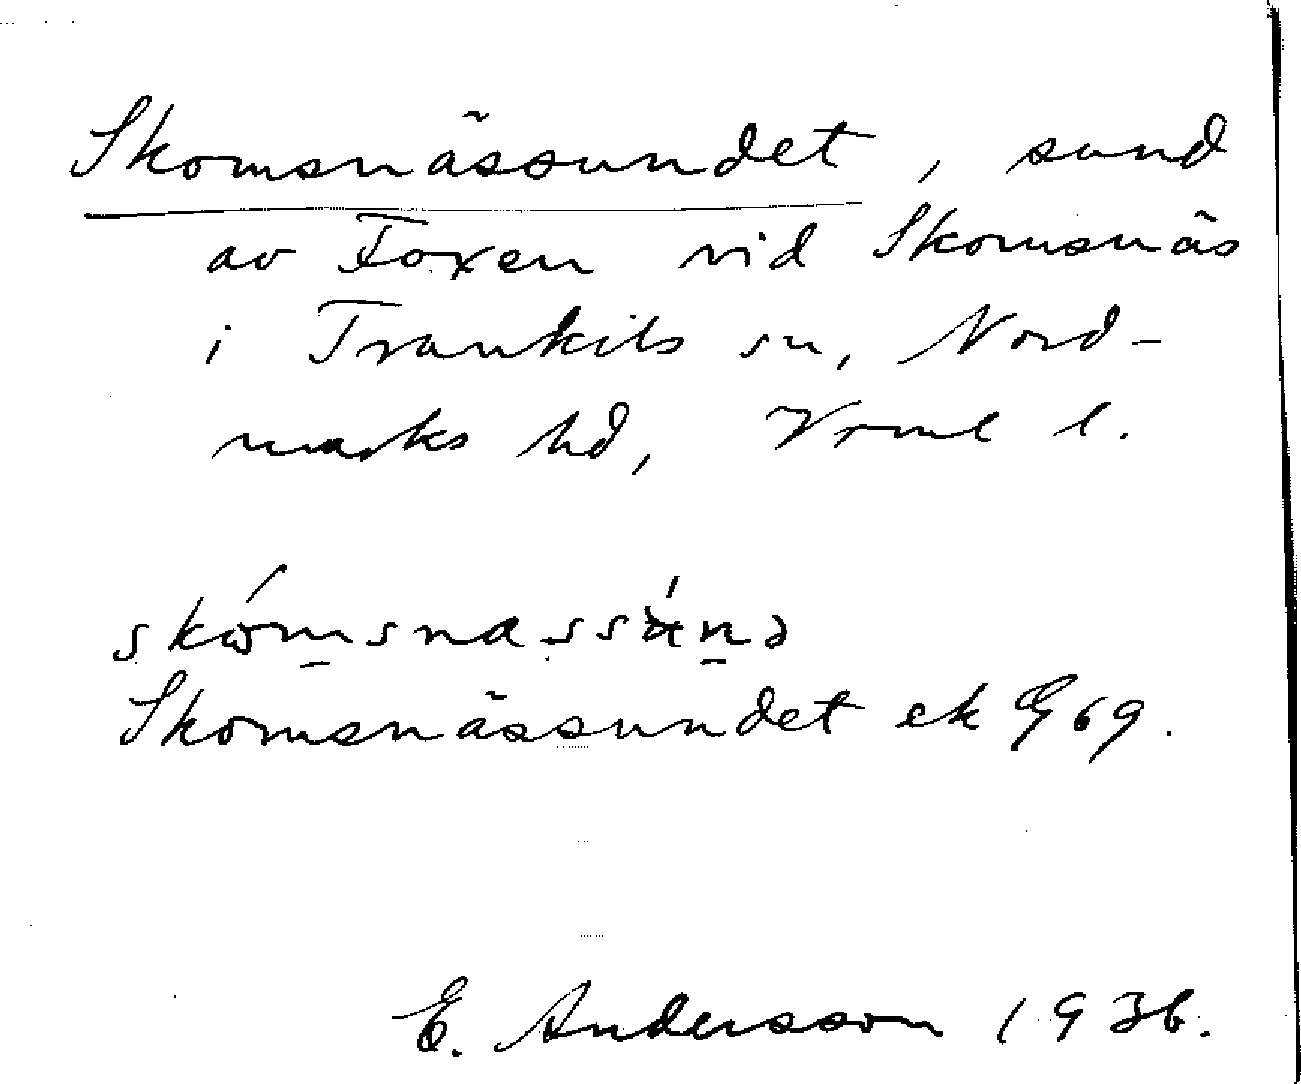 Skomsnässundet, sund
av Foxen vid Skomsnäs
i Trankils sn, Nord-
marks hd, Vrml l.
Skomsnässundet ek G 69.
E. Andersson 1936.